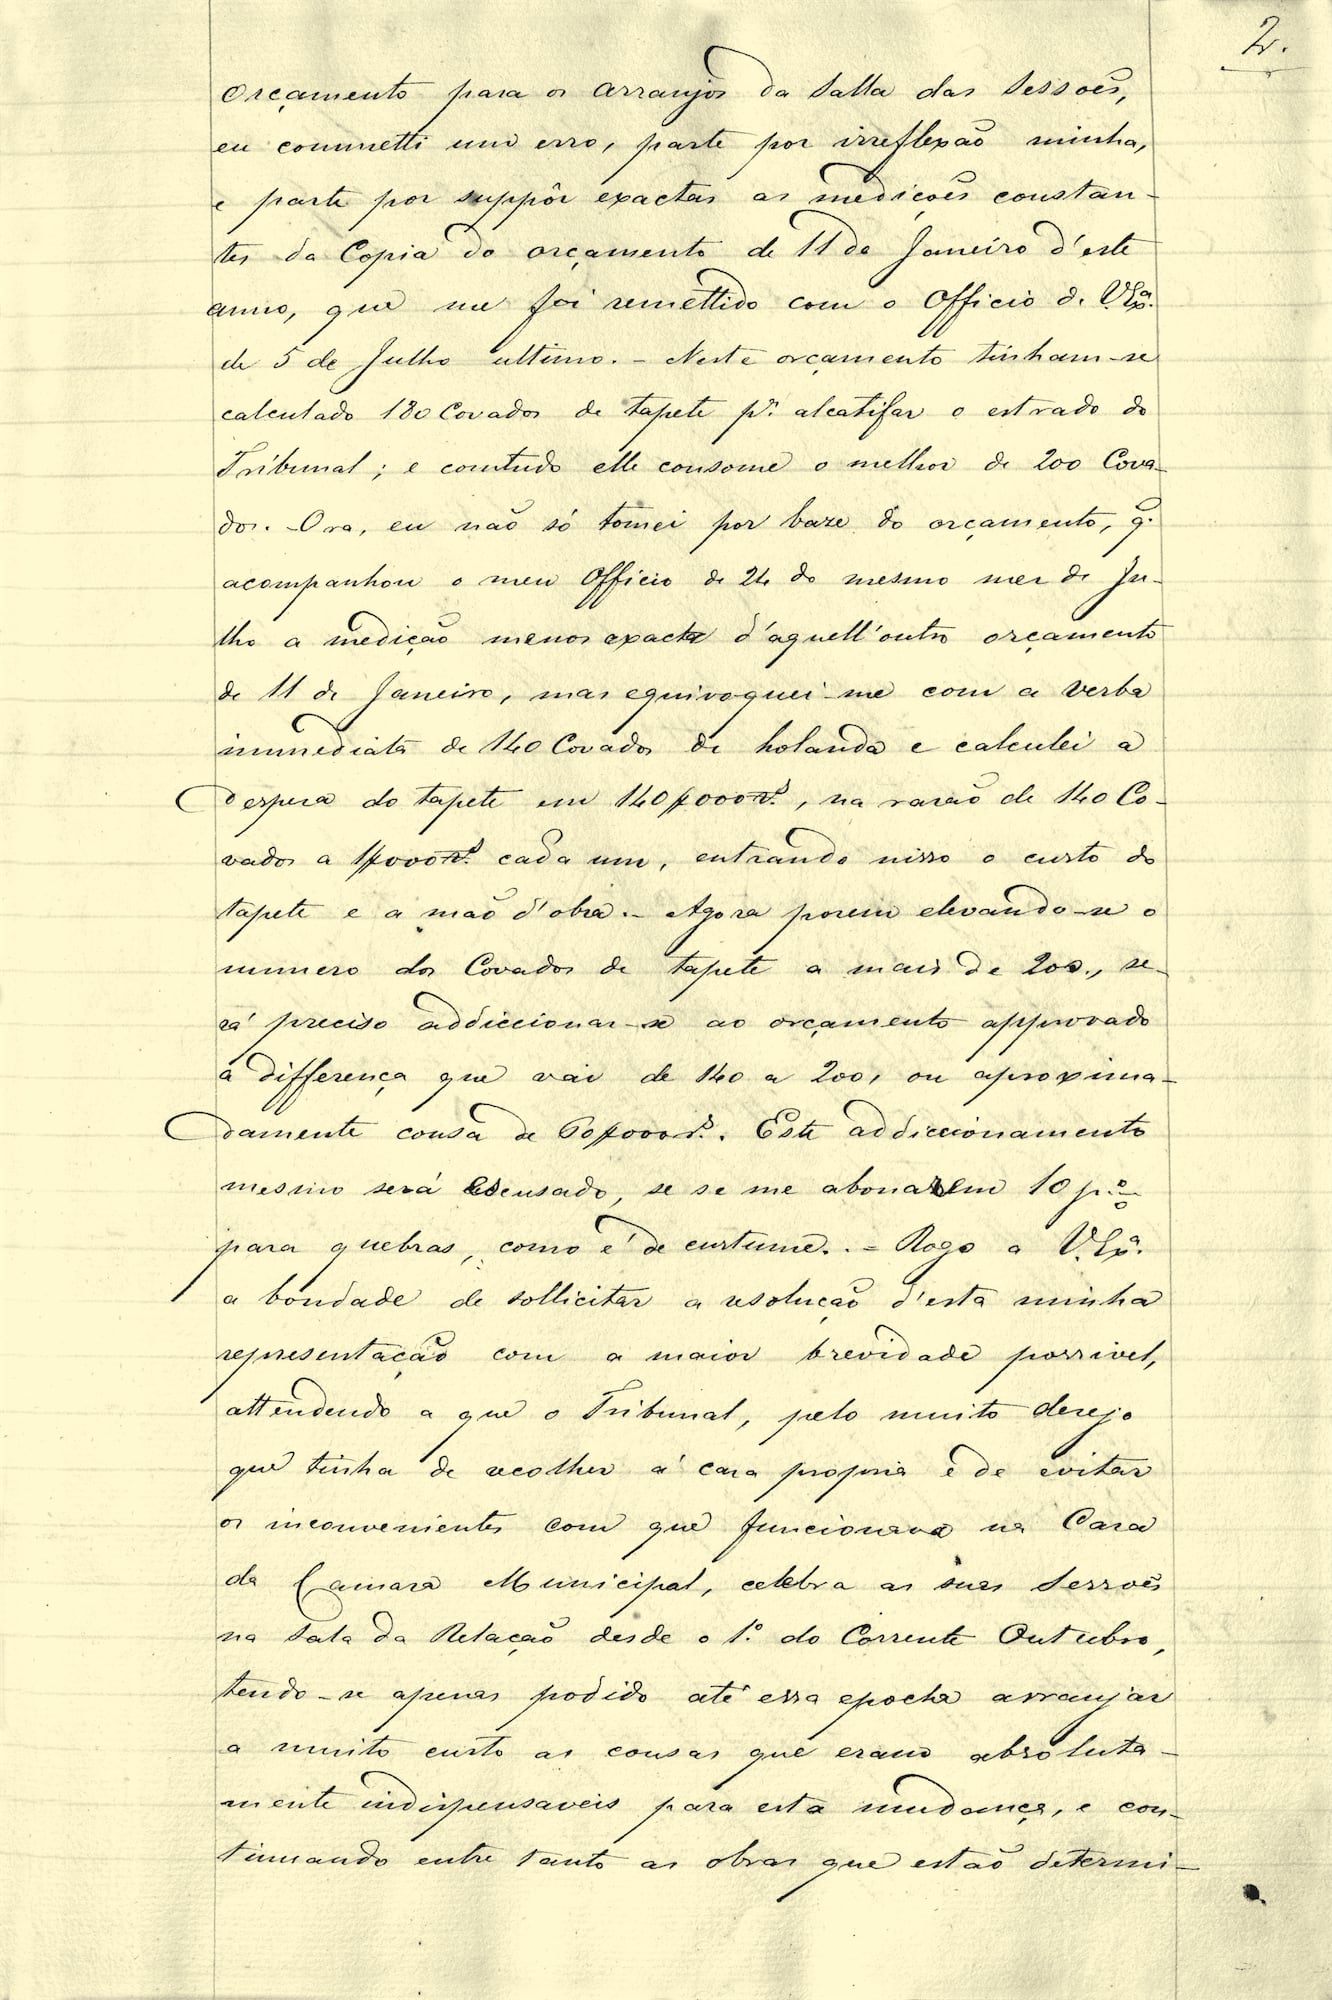 2.
orçamento para os arranjos da Salla das Sessoẽs,
eu commetti um erro, parte por irreflexaõ minha,
e parte por suppôr exactas as mediçoẽs constan-
tes da Copia do orçamento de 11 de Janeiro d'este
anno, que me foi remettido com o Officio de V. Exª.
de 5 de Julho ultimo. - Neste orçamento tinham-se
calculado 180 Covados de tapete pª. alcatifar o estrado do
Tribunal; e comtudo elle consome o melhor de 200 Cova-
dos. - Ora, eu naõ só tomei por baze do orçamento, q̃.
acompanhou o meu Officio de 24 do mesmo mez de Ju-
lho a mediçaõ menos exacta d'aquell'outro orçamento
de 11 de Janeiro, mas equivoquei-me com a verba
immediata de 140 Covados de holanda e calculei a
despesa do tapete em 140$000 rs., na rasaõ de 140 Co-
vados a 1$000 rs. cada um, entrando nisso o custo do
tapete e a maõ d'obra. - Agora porem elevando-se o
numero dos Covados de tapete a mais de 200., se-
rá preciso addiccionar-se ao orçamento approvado
a differença que vai de 140 a 200, ou aproxima-
damente cousa de 60$000 rs. Este addiccionamento
mesmo será escusado, se se me abonarem 10 p.%
para quebras, como é de custume. - Rogo a V. Exª.
a bondade de sollicitar a resoluçaõ d'esta minha
representaçaõ com a maior brevidade possivel,
attendendo a que o Tribunal, pelo muito desejo
que tinha de recolher á casa propria e de evitar
os inconvenientes com que funcionava na Casa
da Camara Municipal, celebra as suas Sessoẽs
na Sala da Relaçaõ desde o 1º. do Corrente Outubro,
tendo-se apenas podido até essa epocha arranjar
a muito custo as cousas que eram absoluta-
mente indispensaveis para esta mudança, e con-
tinuando entre tanto as obras que estaõ determi-